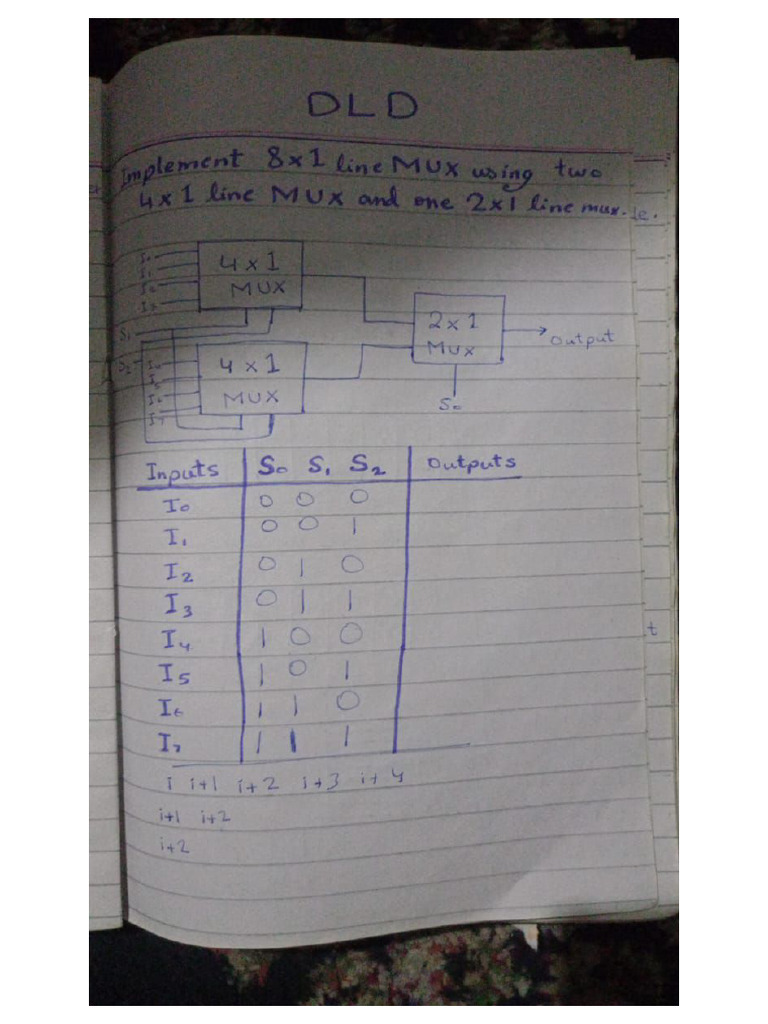 DLD
Implement 8x1 line MUX using two
4x1 line MUX and one 2x1 line mux.
I0
I1
I2
I3
4x1
MUX
S1
S2
I4
I5
I6
I7
4x1
MUX
2x1
MUX
Output
S0
Inputs S0 S1 S2 Outputs
I0 0 0 0
I1 0 0 1
I2 0 1 0
I3 0 1 1
I4 1 0 0
I5 1 0 1
I6 1 1 0
I7 1 1 1
i i+1 i+2 i+3 i+4
i+1 i+2
i+2
t